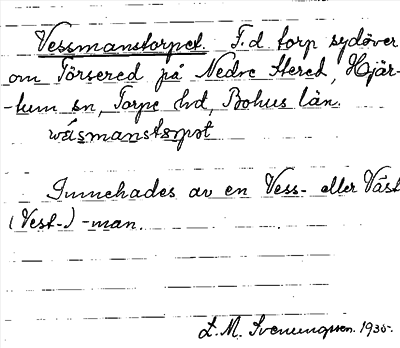 Vessmanstorpet. F.d torp sydöver
om Törsered på Nedre Hered, Hjär-
-tum sn, Torpe hd, Bohus län.
väsmanstorpət
Innehades av en Vess- eller Väst
(Vest-) -man.
L. M. Svenungsson. 1935.